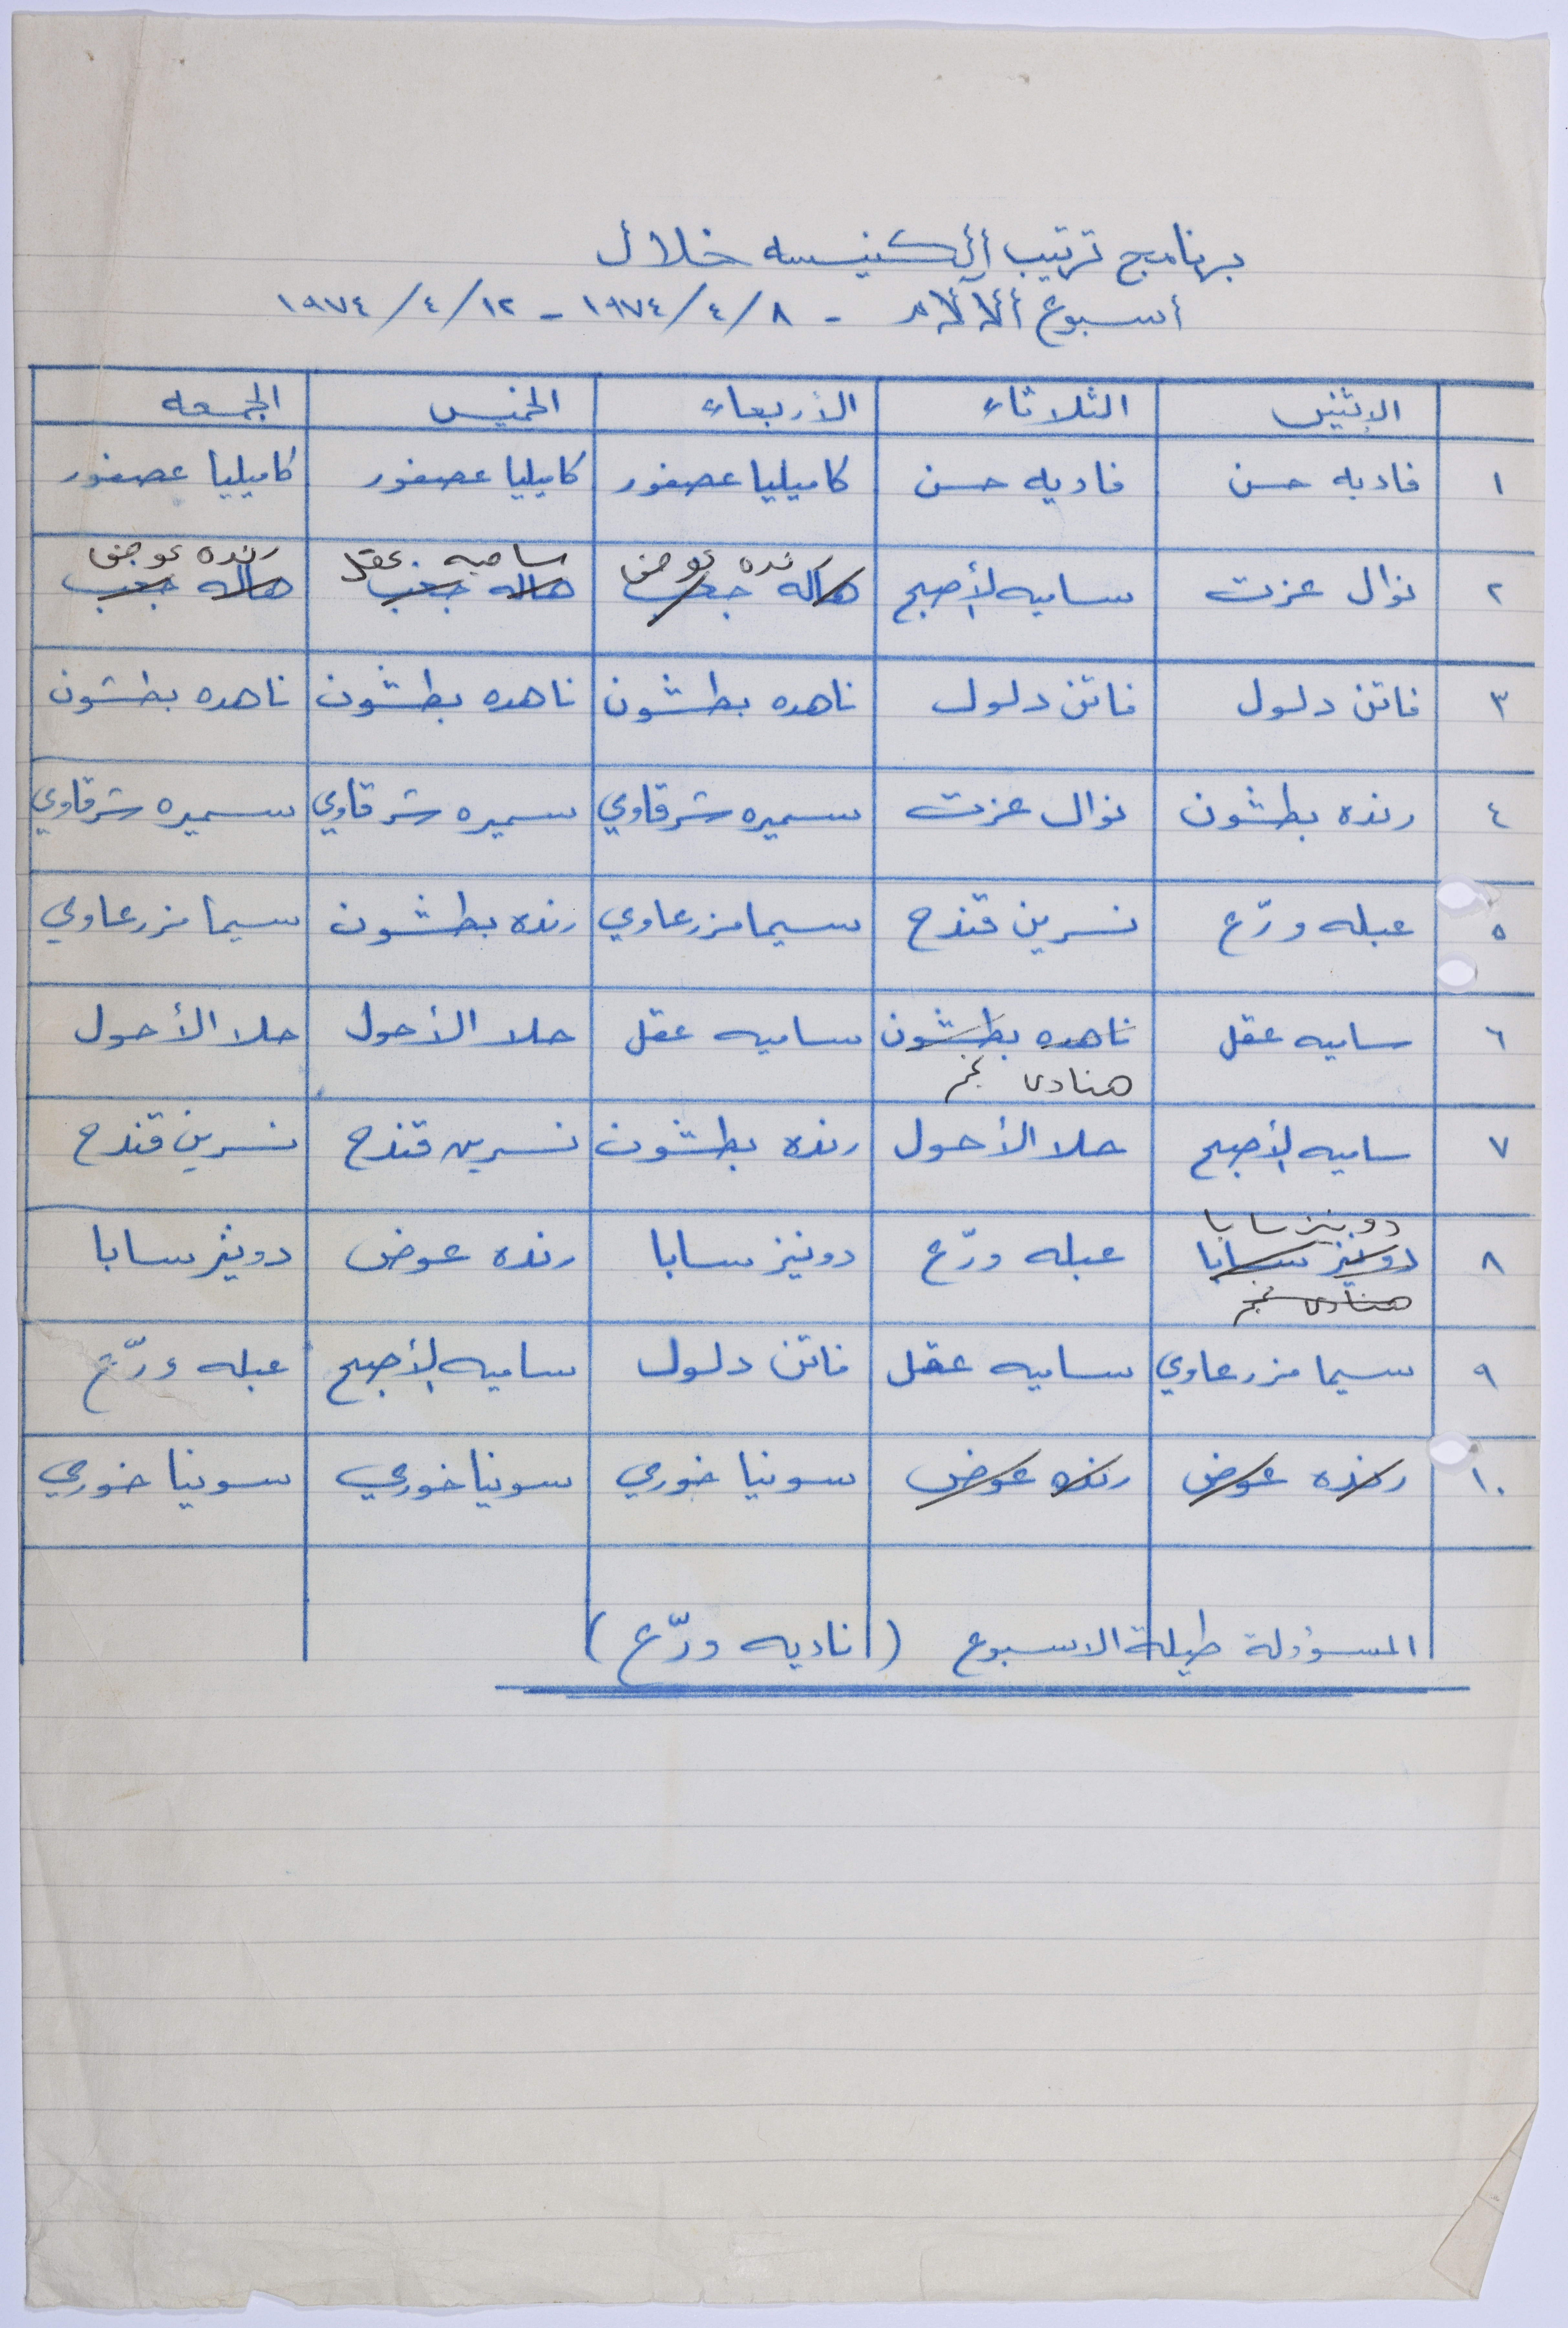 برنامج ترتيب الكنيسه خلال
أسبوع الآلام - ٨/٤/١٩٧٤ - ١٢/٤/١٩٧٤
الاثنين الثلاثاء الأربعاء الخميس الجمعه
١ فاديه حسن فاديه حسن كاميليا عصفور كاميليا عصفور كاميليا عصفور
رنده عوض ساميه عقل رنده عوض
٢ نوال عزت ساميه الأصبح هاله جعب هاله جعب هاله جعب
٣ فاتن دلول فاتن دلول ناهده بطشون ناهده بطشون ناهده بطشون
٤ رنده بطشون نوال عزت سميره شرقاوي سميره شرقاوي سميره شرقاوي
٥ عبله ورّع نسرين قندح سيما مزرعاوي رنده بطشون سيما مزرعاوي
٦ ساميه عقل ناهده بطشون ساميه عقل حلا الأحول حلا الأحول
هنادى
٧ ساميه الأصبح حلا الأحول رنده بطشون نسرين قندح نسرين قندح
دونيز سابا
٨ دونيز سابا عبله ورّع دونيز سابا رنده عوض دونيز سابا
هنادى
٩ سيما مزرعاوي ساميه عقل فاتن دلول ساميه الأصبح عبله ورّع
١٠ رنده عوض رنده عوض سونيا خوري سونيا خوري سونيا خوري
المسؤولة طيلة الاسبوع (ناديه ورّع)